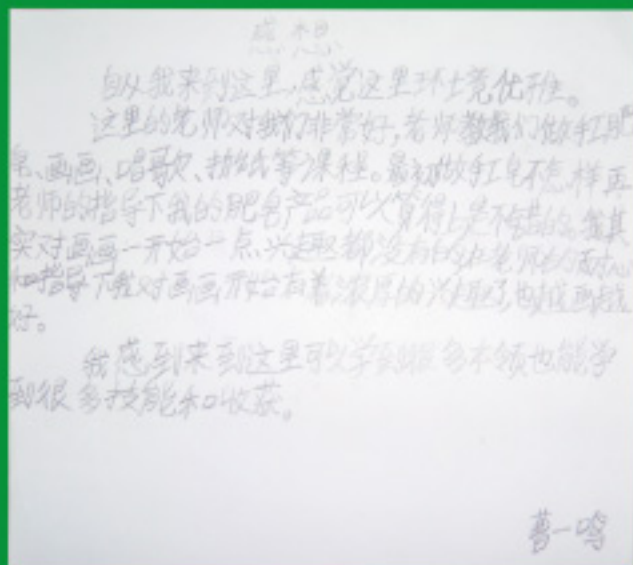 感想
自从我来到这里，感觉这里环境优雅。
这里的老师对我们非常好，老师教我们做手工肥
皂、画画、唱歌、折纸等课程。最初做手工皂不怎样再
老师的指导下我的肥皂产品可以算得上是不错的。我其
实对画画一开始一点兴趣都没有的但老师的耐心
和指导下我对画画开始有着浓厚的兴趣了，也
好。
我感到来到这里可以学到很多本领也能学
到很多技能和收获。
曹一鸣